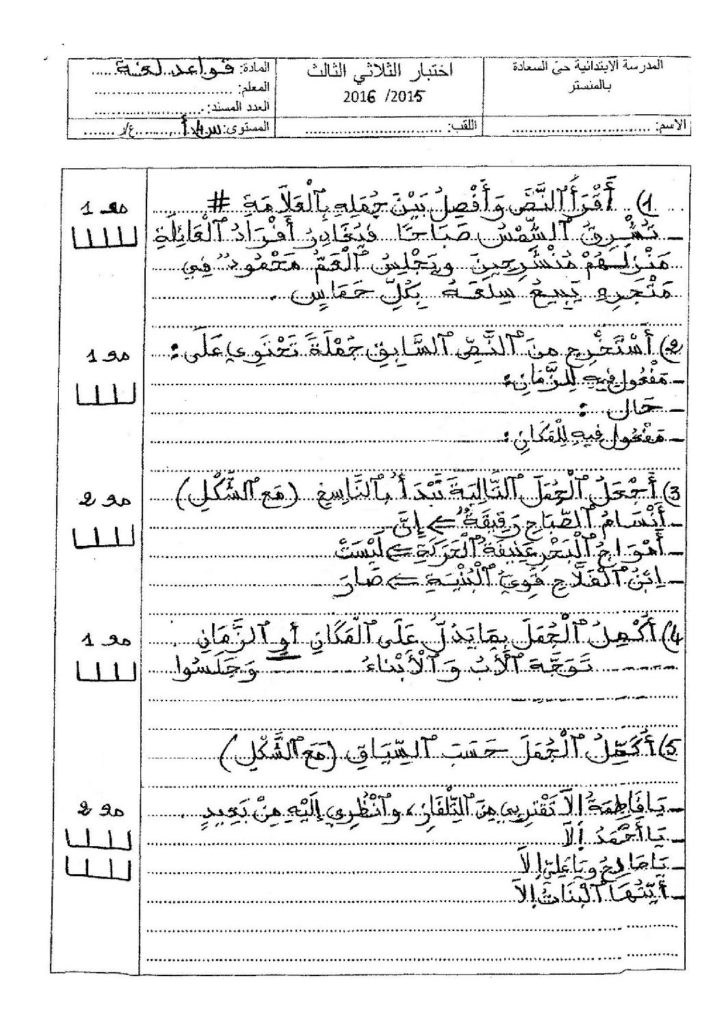 المدرسة الابتدائية حيّ السعادة
بالمنستر
اختبار الثلاثي الثالث
2015/ 2016
المادة: قواعد لغة
المعلم:
العدد المسند:
الاسم:
اللقب:
المستوى: س4 أ ع/ر
مع 1
1) أَقْرَأُ ٱلنَّصَّ وَأَفْصِلُ بَيْنَ جُمَلِهِ بِٱلْعَلَامَةِ #
- تُشْرِقُ ٱلشَّمْسُ صَبَاحًا فَيُغَادِرُ أَفْرَادُ ٱلْعَائِلَةِ
مَنْزِلَهُمْ مُنْشَرِحِينَ وَيَجْلِسُ ٱلْعَمُّ مَحْمُودٌ فِي
مَتْجَرِهِ يَبِيعُ سِلَعَهُ بِكُلِّ حَمَاسٍ .
مع 1
2) أَسْتَخْرِجُ مِنَ ٱلنَّصِّ ٱلسَّابِقِ جُمْلَةً تَحْتَوِي عَلَى :
- مَفْعُول فِيهِ لِلزَّمَانِ:
- حَال :
- مَفْعُول فِيهِ لِلْمَكَانِ:
مع 2
3) أَجْعَلُ ٱلْجُمَلَ ٱلتَّالِيَةَ تَبْدَأُ بِٱلنَّاسِخِ (مَعَ ٱلشَّكْلِ)
- أَنْسَامُ ٱلصَّبَاحِ رَقِيقَةٌ ⇐ إِنَّ
- أَمْوَاجُ ٱلْبَحْرِ عَنِيفَةُ ٱلْحَرَكَةِ ⇐ لَيْسَتْ
- اِبْنُ ٱلْفَلَّاحِ قَوِيُّ ٱلْبُنْيَةِ ⇐ صَارَ
مع 1
4) أُكْمِلُ ٱلْجُمَلَ بِمَا يَدُلُّ عَلَى ٱلْمَكَانِ أَوِ ٱلزَّمَانِ .
تَوَجَّهَ ٱلْأَبُ وَٱلْأَبْنَاءُ وَجَلَسُوا
5) أُكَمِّلُ ٱلْجُمَلَ حَسَبَ ٱلسِّيَاقِ (مَعَ ٱلشَّكْلِ)
مع 2
- يَا فَاطِمَةُ! لَا تَقْتَرِبِي مِنَ ٱلتِّلْفَازِ، وَٱنْظُرِي إِلَيْهِ مِنْ بَعِيدٍ .
- يَا أَحْمَدُ ! لَا
- يَا صَالِحُ وَيَا عَلِيُّ! لَا
- أَيَّتُهَا ٱلْبَنَاتُ! لَا